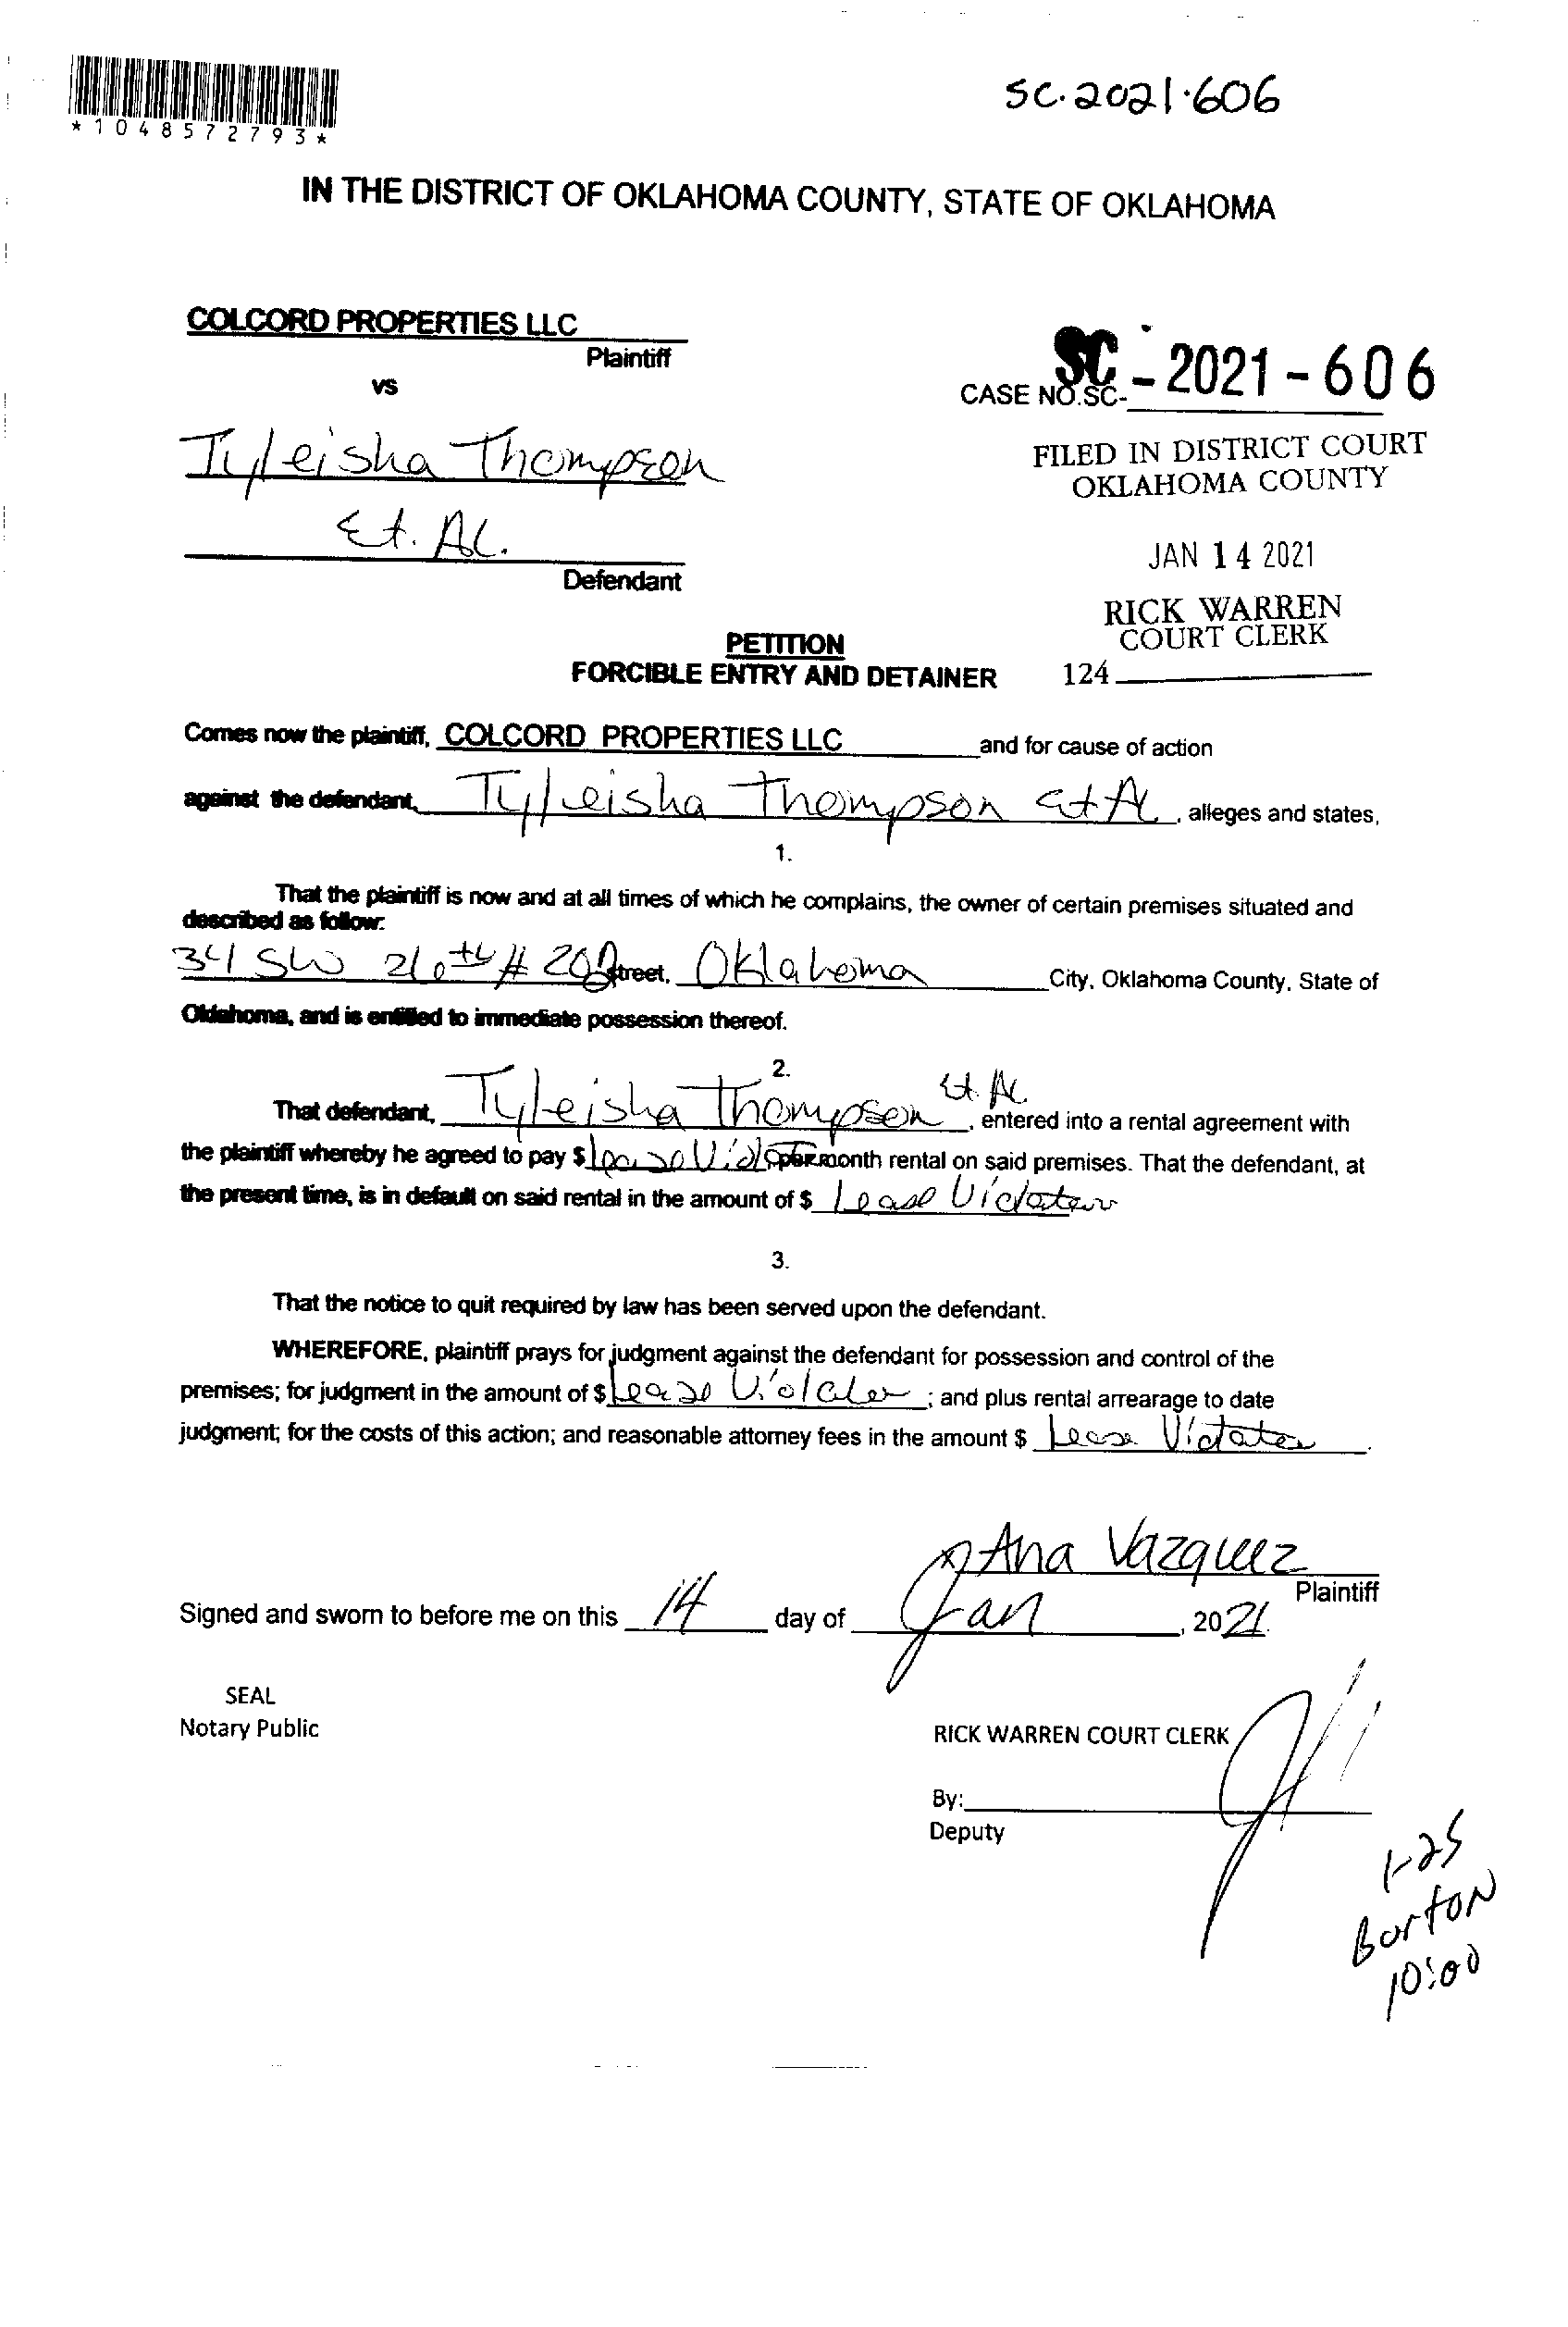 *1048572793*
SC.2021.606
IN THE DISTRICT OF OKLAHOMA COUNTY, STATE OF OKLAHOMA
COLCORD PROPERTIES LLC
Plaintiff
vs
CASE NO.SC- SC-2021-606
Tyleisha Thompson
FILED IN DISTRICT COURT
OKLAHOMA COUNTY
Et. Al.
JAN 14 2021
Defendant
RICK WARREN
COURT CLERK
124
PETITION
FORCIBLE ENTRY AND DETAINER
Comes now the plaintiff, COLCORD PROPERTIES LLC and for cause of action
against the defendant, Tyleisha Thompson Et Al, alleges and states,
1.
That the plaintiff is now and at all times of which he complains, the owner of certain premises situated and
described as follow:
34 SW 26th # street, Oklahoma City, Oklahoma County, State of
Oklahoma, and is entitled to immediate possession thereof.
2.
That defendant, Tyleisha Thompson Et. Al, entered into a rental agreement with
the plaintiff whereby he agreed to pay $ Lease per month rental on said premises. That the defendant, at
the present time, is in default on said rental in the amount of $ Lease Violation
3.
That the notice to quit required by law has been served upon the defendant.
WHEREFORE, plaintiff prays for judgment against the defendant for possession and control of the
premises; for judgment in the amount of $ Lease Violation; and plus rental arrearage to date
judgment; for the costs of this action; and reasonable attorney fees in the amount $ Lease Violation.
Ana Vazquez
Plaintiff
Signed and sworn to before me on this 14 day of Jan, 2021.
SEAL
Notary Public
RICK WARREN COURT CLERK
By:
Deputy
1-25
Barton
10:00